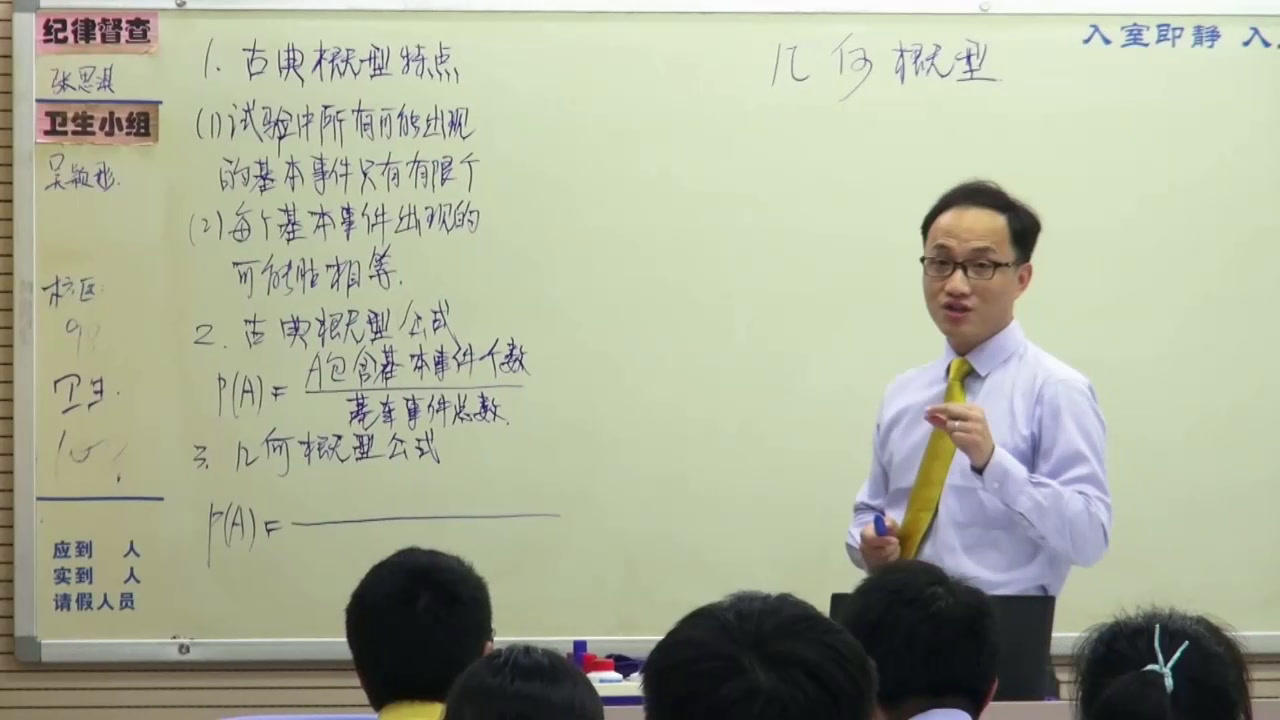 纪律督查
张思淇
卫生小组
吴颖彤.
校区:
卫生.
应到 人
实到 人
请假人员
1. 古典概型特点
(1)试验中所有可能出现
的基本事件只有有限个
(2)每个基本事件出现的
可能性相等.
2. 古典概型公式
P(A)= A包含基本事件个数
基本事件总数.
3. 几何概型公式
P(A)=
几何概型.
入室即静 入